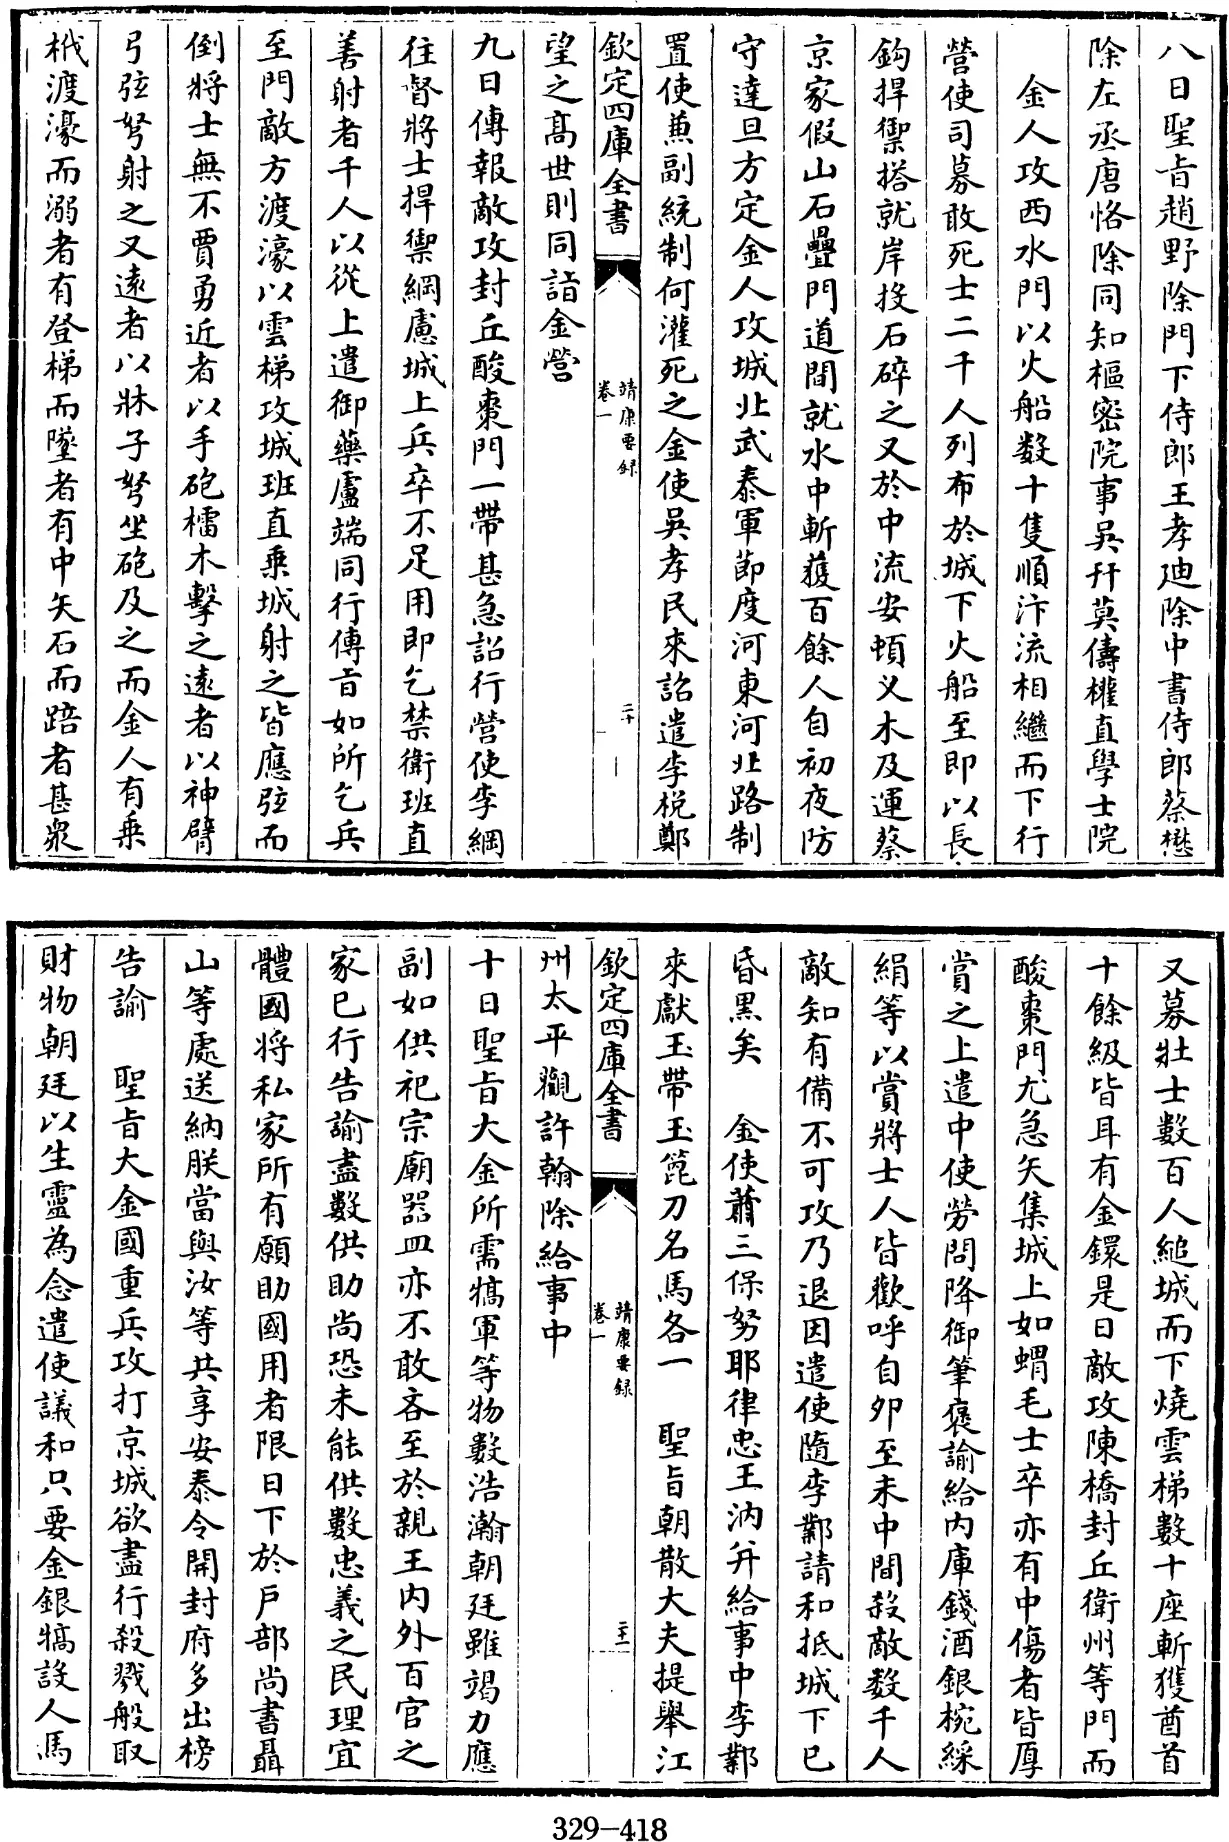 八日聖旨趙野除門下侍郎王孝迪除中書侍郎蔡懋
除左丞唐恪除同知樞密院事吳幵莫儔權直學士院
金人攻西水門以火船數十隻順汴流相繼而下行
營使司募敢死士二千人列布於城下火船至即以長
鈎捍禦搭就岸投石碎之又於中流安頓义木及運蔡
京家假山石疊門道間就水中斬獲百餘人自初夜防
守達旦方定金人攻城北武泰軍節度河東河北路制
置使兼副統制何灌死之金使吳孝民來詔遣李棁鄭
欽定四庫全書
靖康要録
卷一
二十
望之髙世則同詣金營
九日傳報敵攻封丘酸棗門一帶甚急詔行營使李綱
往督將士捍禦綱慮城上兵卒不足用即乞禁衛班直
善射者千人以從上遣御藥盧端同行傳旨如所乞兵
至門敵方渡濠以雲梯攻城班直乘城射之皆應弦而
倒將士無不賈勇近者以手砲檑木擊之遠者以神臂
弓弦弩射之又遠者以牀子弩坐砲及之而金人有乘
栰渡濠而溺者有登梯而墜者有中矢石而踣者甚衆
又募壯士數百人縋城而下燒雲梯數十座斬獲酋首
十餘級皆耳有金鐶是日敵攻陳橋封丘衛州等門而
酸棗門尤急矢集城上如蝟毛士卒亦有中傷者皆厚
賞之上遣中使勞問降御筆褒諭給内庫錢酒銀椀綵
絹等以賞將士人皆歡呼自夘至未申間殺敵數千人
敵知有備不可攻乃退因遣使隨李鄴請和抵城下已
昏黑矣　金使蕭三保努耶律忠王汭并給事中李鄴
來獻玉帶玉箆刀名馬各一　聖旨朝散大夫提舉江
欽定四庫全書
靖康要録
卷一
二十一
州太平觀許翰除給事中
十日聖旨大金所需犒軍等物數浩瀚朝廷雖竭力應
副如供祀宗廟器皿亦不敢吝至於親王内外百官之
家已行告諭盡數供助尚恐未能供數忠義之民理宜
體國將私家所有願助國用者限日下於戶部尚書聶
山等處送納朕當與汝等共享安泰令開封府多出榜
告諭　聖旨大金國重兵攻打京城欲盡行殺戮般取
財物朝廷以生靈為念遣使議和只要金銀犒設人馬
329-418